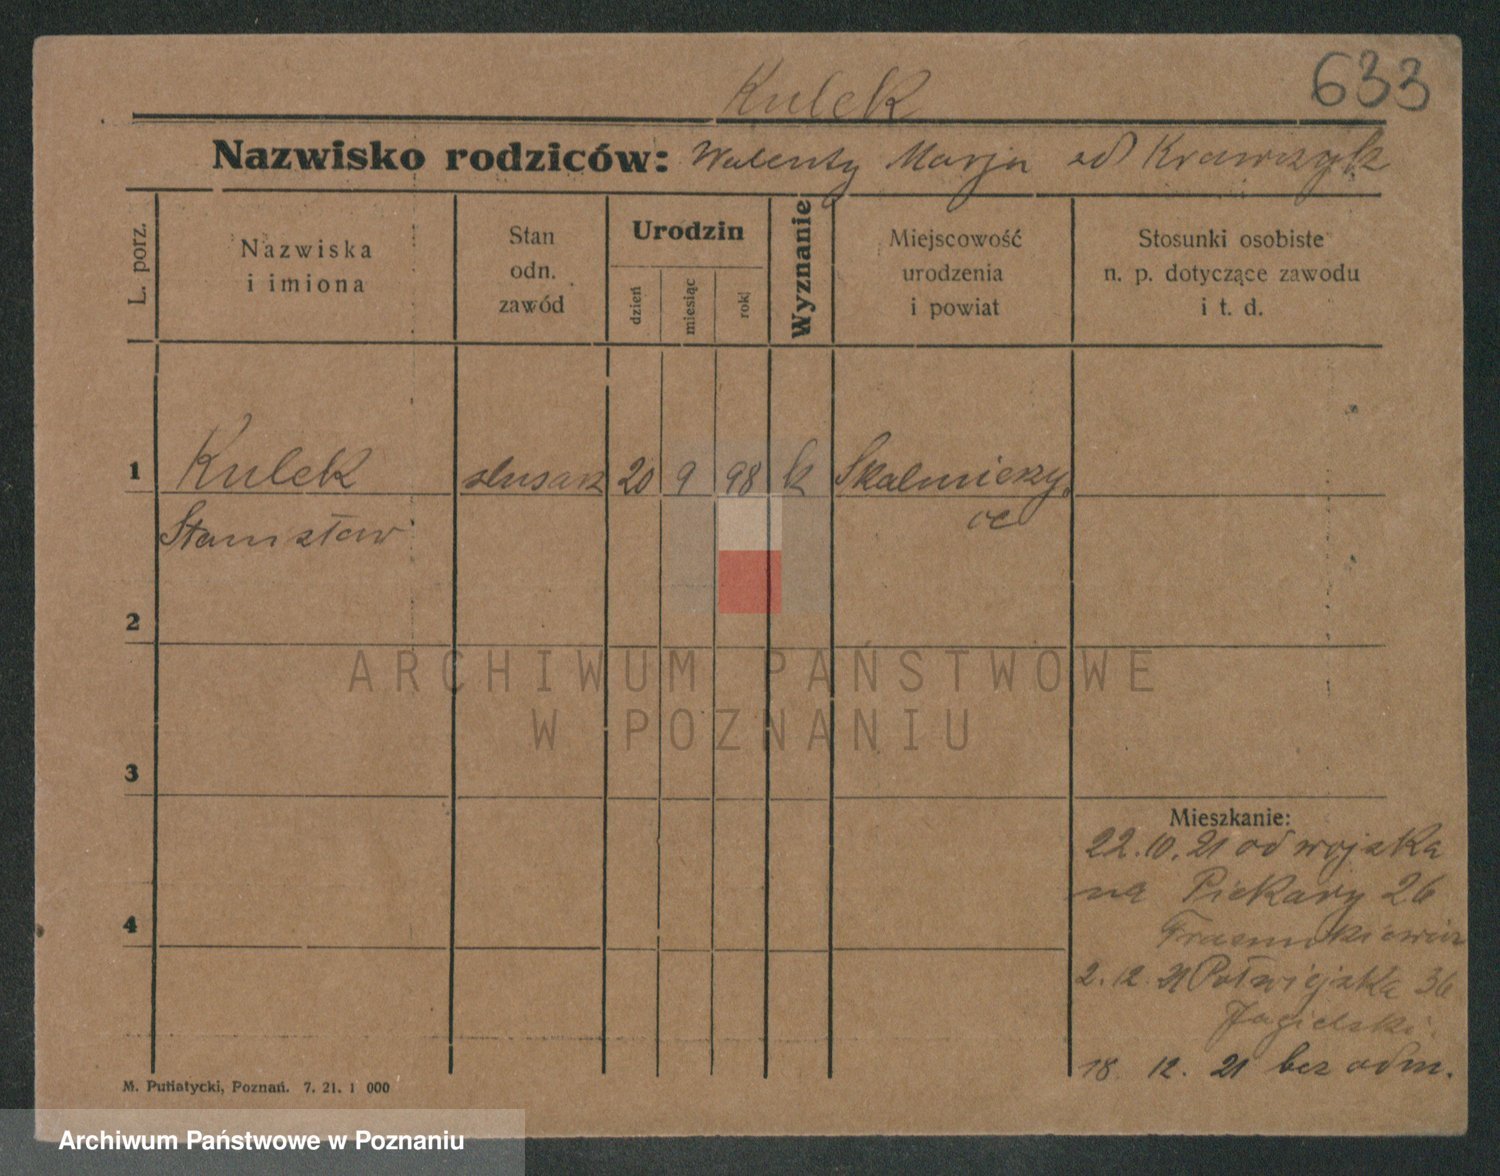 Kulek
633
Nazwisko rodziców: Walenty Marja od Krawczyk
L. porz.
Nazwiska
i imiona
Stan
odn.
zawód
Urodzin
dzień
miesiąc
rok
Wyznanie
Miejscowość
urodzenia
i powiat
Stosunki osobiste
n. p. dotyczące zawodu
i t. d.
1 Kulek slusarz 20 9 98 k Skalmierzy
Stanisław
2
ARCHIWUM PAŃSTWOWE
W POZNANIU
3
Mieszkanie:
22.10.21 od wojska
na Piekary 26
4
2.12.21 Półwiejska 36
Jagielski
18 12. 21 bez odm.
M. Putiatycki, Poznań. 7. 21. 1 000
Archiwum Państwowe w Poznaniu